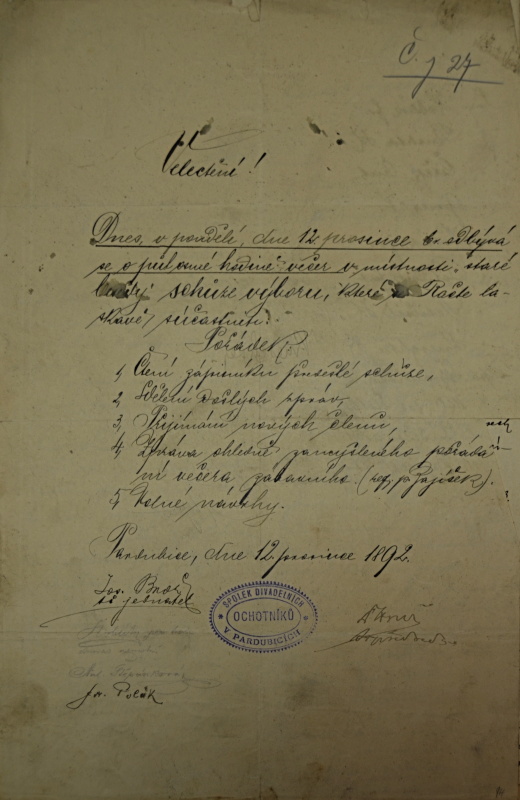 Č. j 27
Velectěný!
Dnes, v pondělí, dne 12 prosince t.r. odbývá
se o půl osmé hodině večer v místnosti "staré
schůze výboru, které Račte la-
skavě súčastniti.
Pořádek:
1, Čtení zápisníku prvešlé schůze,
2, Sdělení došlých zpráv,
3, Přijímání nových členů,
4, Zpráva ohledně zamýšleného pořádá-
ní večera zábavního. (ref. p. Zajíček).
5, Volné návrhy.
Pardubice, dne 12. prosince 1892.
Jos. Brož
t.č. jednatel
SPOLEK DIVADELNÍCH
OCHOTNÍKŮ
V PARDUBICÍCH
Ant. Štěpánková
Jos. Polák